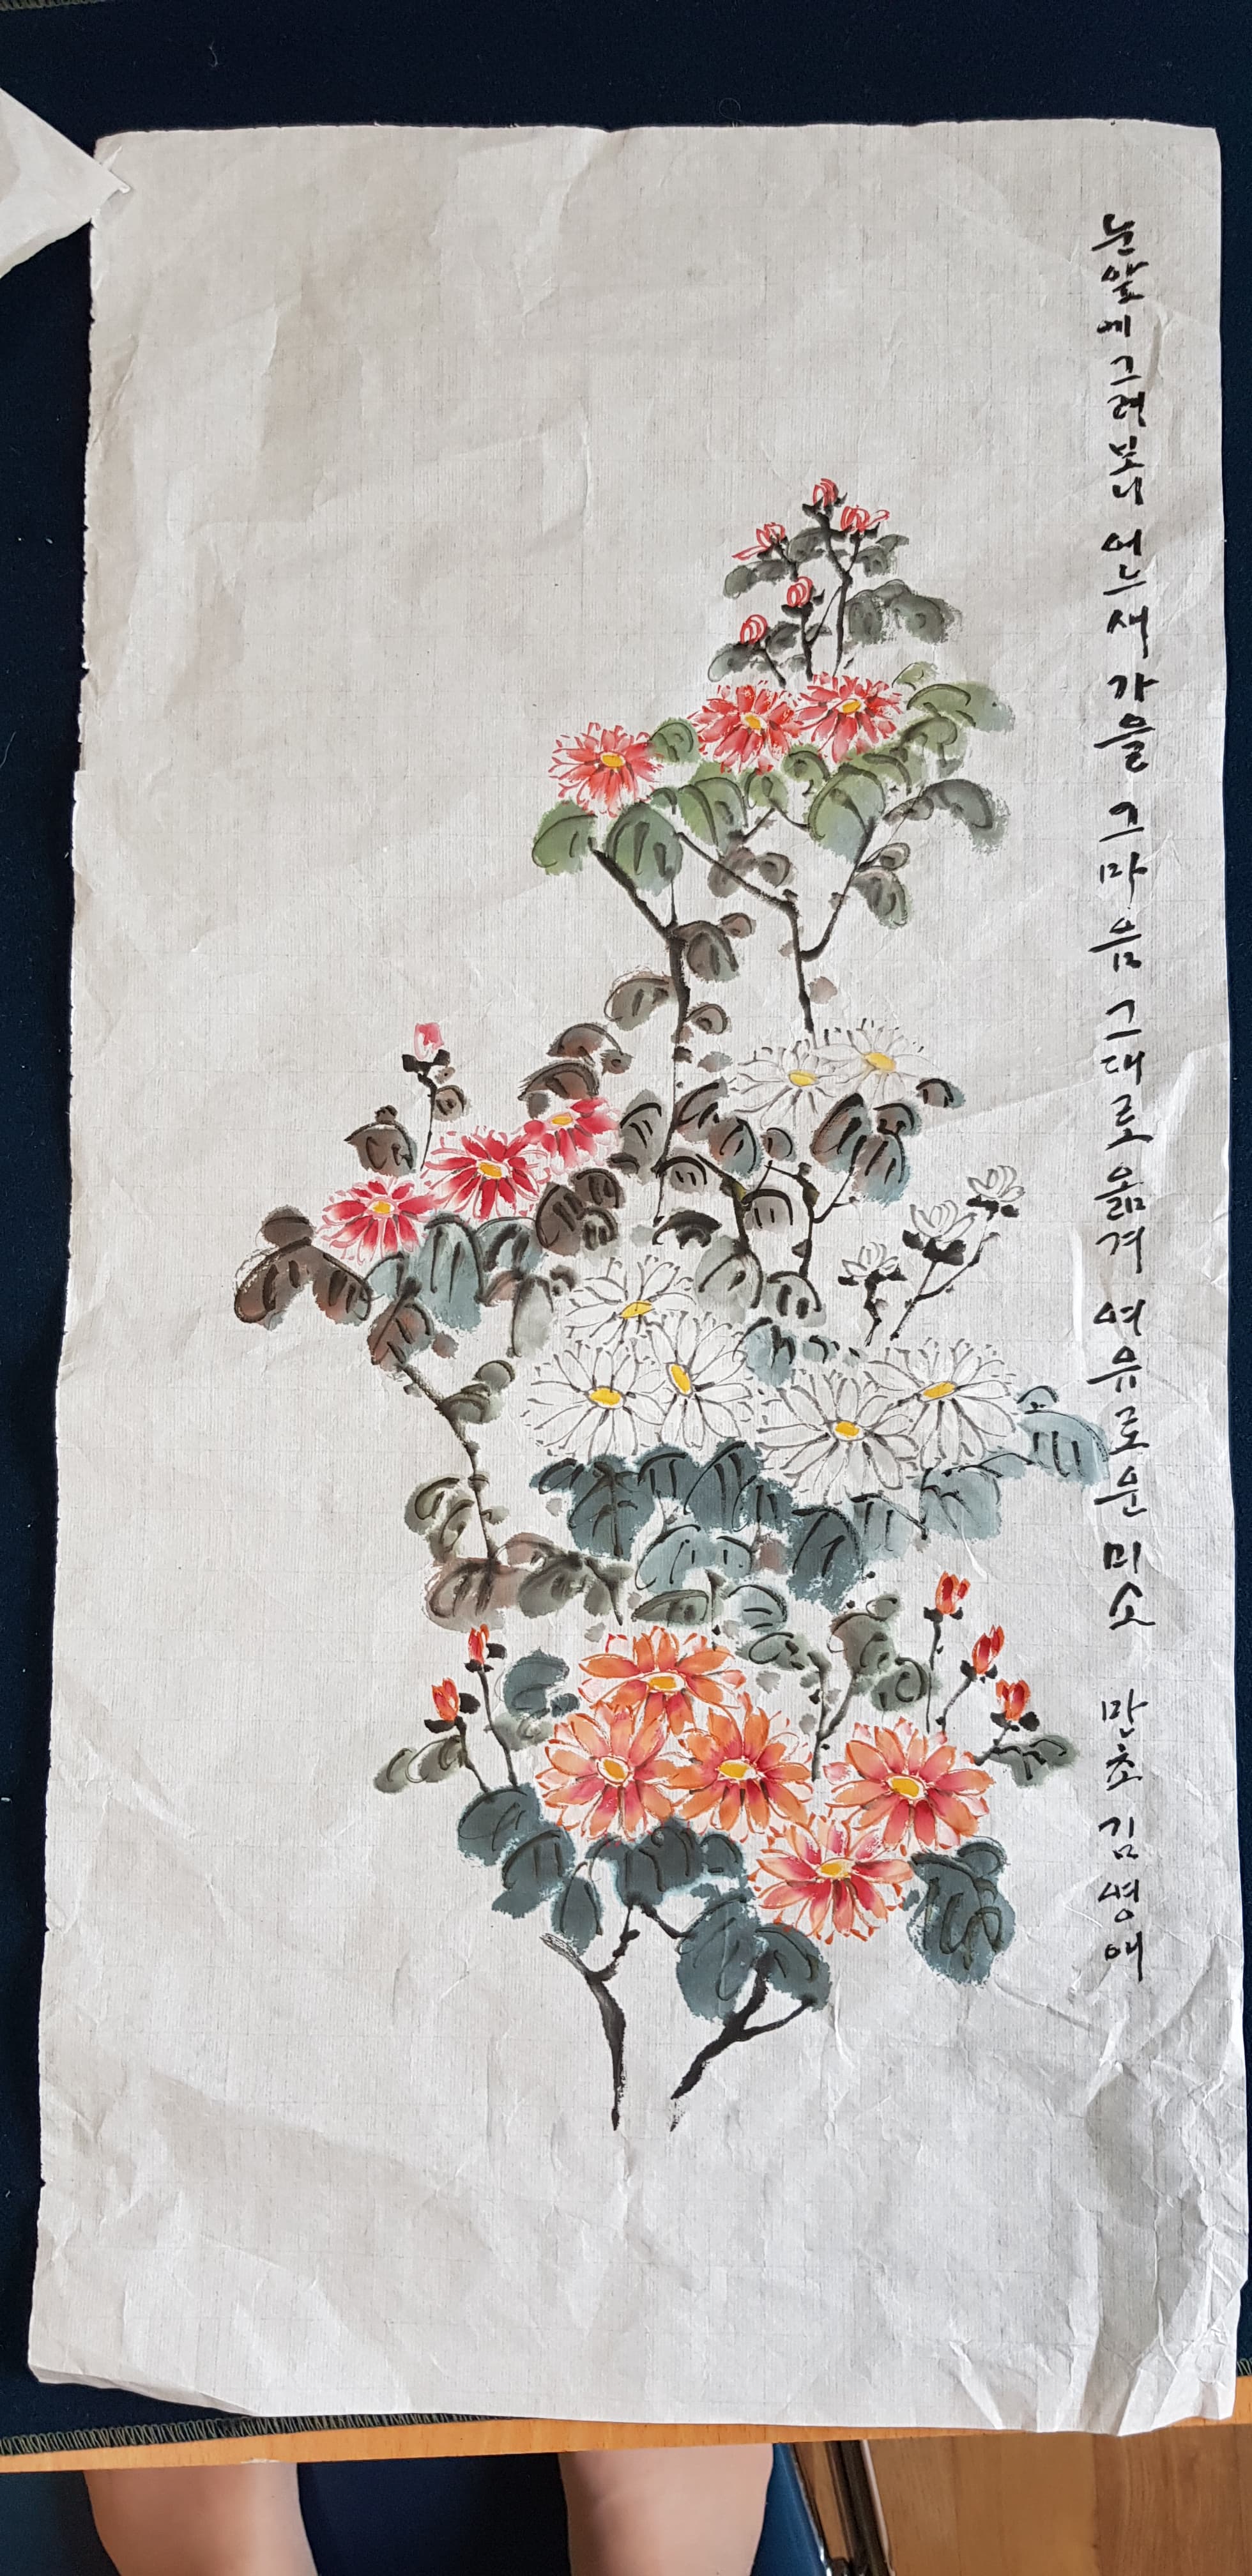 눈앞에 그려보니 어느새 가을 그 마음 그대로 옮겨 여유로운 미소 만초 김영애